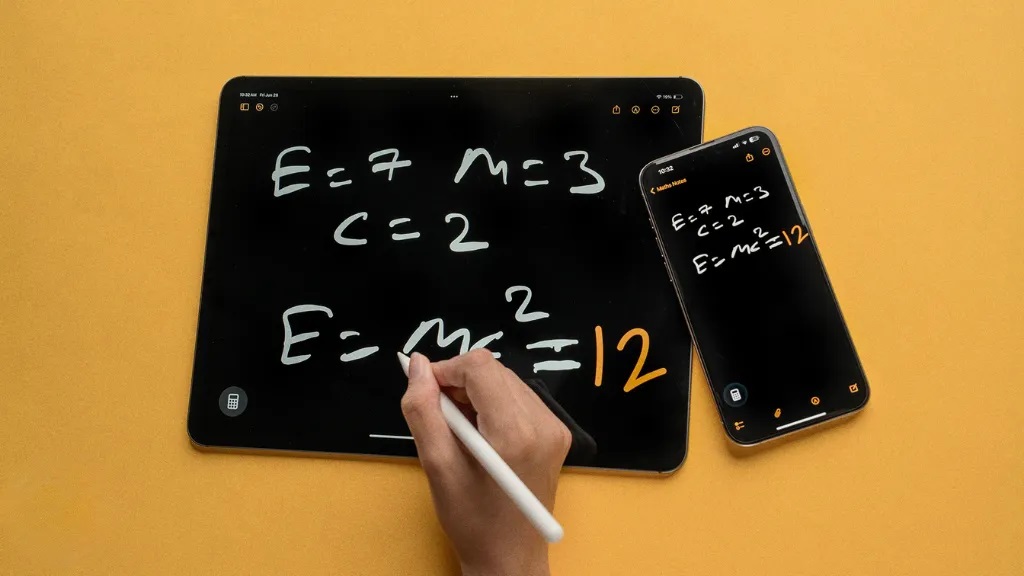 10:32 AM Fri Jun 28
19%
E = 7 M = 3
C = 2
E = MC² = 12
10:32
Maths Notes
E = 7 M = 3
C = 2
E = MC² = 12